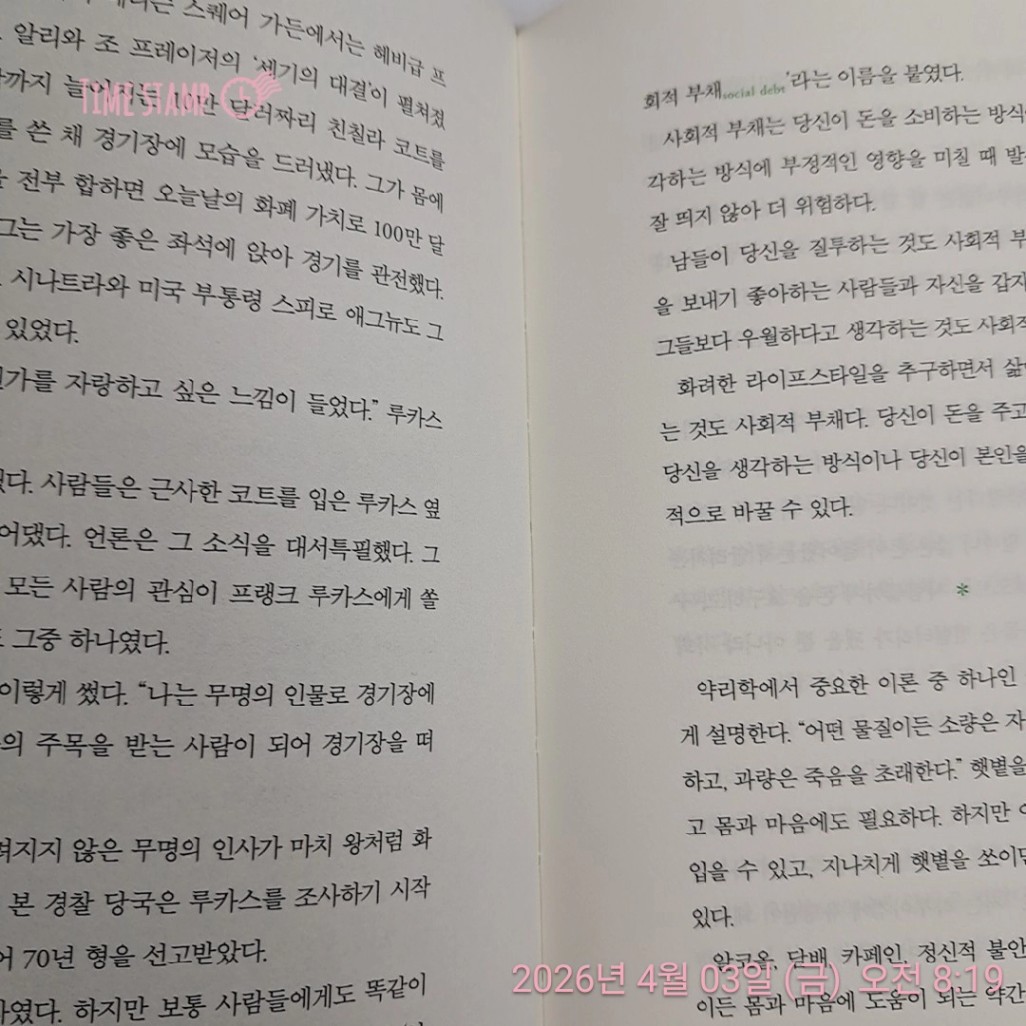 스퀘어 가든에서는 헤비급 프
알리와 조 프레이저의 '세기의 대결'이 펼쳐졌
까지 늘어 10만 달러짜리 친칠라 코트를
를 쓴 채 경기장에 모습을 드러냈다. 그가 몸에
전부 합하면 오늘날의 화폐 가치로 100만 달
그는 가장 좋은 좌석에 앉아 경기를 관전했다.
시나트라와 미국 부통령 스피로 애그뉴도 그
있었다.
가를 자랑하고 싶은 느낌이 들었다." 루카스
다. 사람들은 근사한 코트를 입은 루카스 옆
어댔다. 언론은 그 소식을 대서특필했다. 그
모든 사람의 관심이 프랭크 루카스에게 쏠
그중 하나였다.
이렇게 썼다. "나는 무명의 인물로 경기장에
의 주목을 받는 사람이 되어 경기장을 떠
려지지 않은 무명의 인사가 마치 왕처럼 화
본 경찰 당국은 루카스를 조사하기 시작
어 70년 형을 선고받았다.
하였다. 하지만 보통 사람들에게도 똑같이
회적 부채social debt'라는 이름을 붙였다.
사회적 부채는 당신이 돈을 소비하는 방식
각하는 방식에 부정적인 영향을 미칠 때 발
잘 띄지 않아 더 위험하다.
남들이 당신을 질투하는 것도 사회적 부
을 보내기 좋아하는 사람들과 자신을 갑자
그들보다 우월하다고 생각하는 것도 사회적
화려한 라이프스타일을 추구하면서 삶
는 것도 사회적 부채다. 당신이 돈을 주고
당신을 생각하는 방식이나 당신이 본인을
적으로 바꿀 수 있다.
*
약리학에서 중요한 이론 중 하나인
게 설명한다. "어떤 물질이든 소량은 자
하고, 과량은 죽음을 초래한다." 햇볕을
고 몸과 마음에도 필요하다. 하지만
입을 수 있고, 지나치게 햇볕을 쏘이면
있다.
알코올, 담배, 카페인, 정신적 불안
이든 몸과 마음에 도움이 되는 약간
TIME STAMP
2026년 4월 03일 (금) 오전 8:19